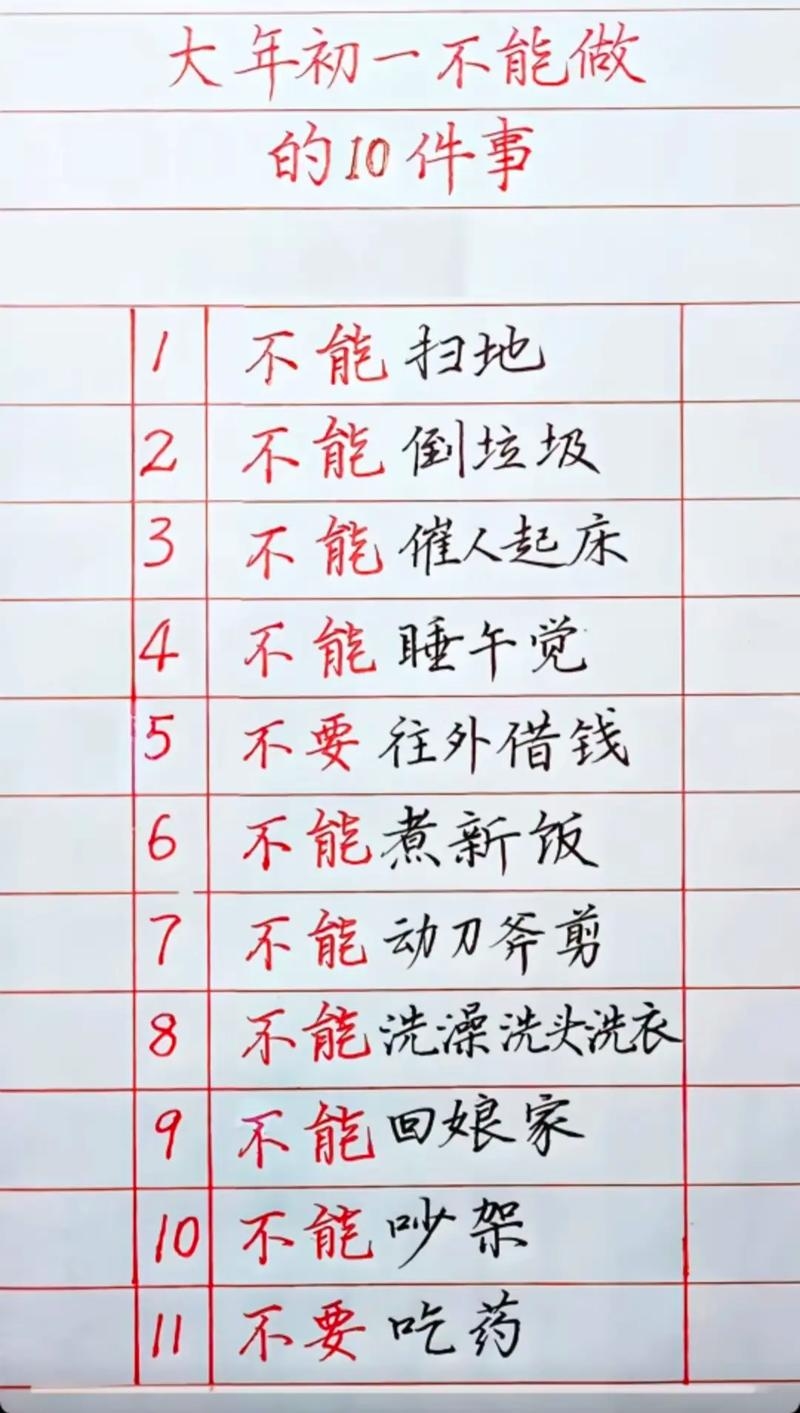 大年初一不能做
的10件事
1 不能扫地
2 不能倒垃圾
3 不能催人起床
4 不能睡午觉
5 不要往外借钱
6 不能煮新饭
7 不能动刀斧剪
8 不能洗澡洗头洗衣
9 不能回娘家
10 不能吵架
11 不要吃药